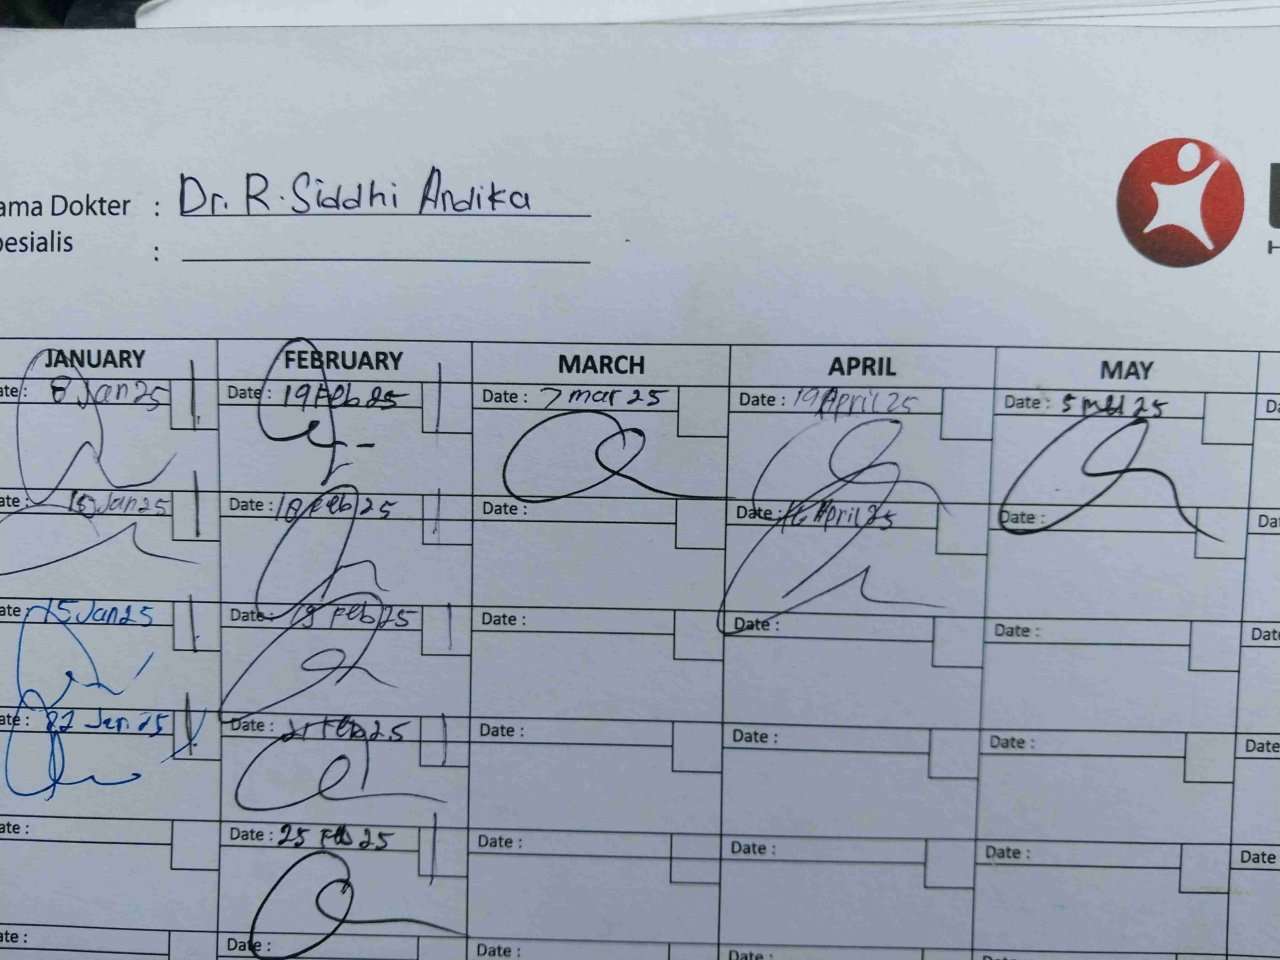 ama Dokter : Dr. R. Siddhi Andika
pesialis :
JANUARY FEBRUARY MARCH APRIL MAY
ate : 8 Jan 25 Date : 19 Feb 25 Date : 7 mar 25 Date : 19 April 25 Date : 5 25 Da
ate : 15 Jan 25 Date : 18 Feb 25 Date : Date : 16 April 25 Date : Dat
ate 15 Jan 25 Date : 19 Feb 25 Date : Date : Date : Date
ate : 22 Jan 25 Date : 21 Feb 25 Date : Date : Date : Date
ate : Date : 25 Feb 25 Date : Date : Date : Date
ate : Date : Date : Date :